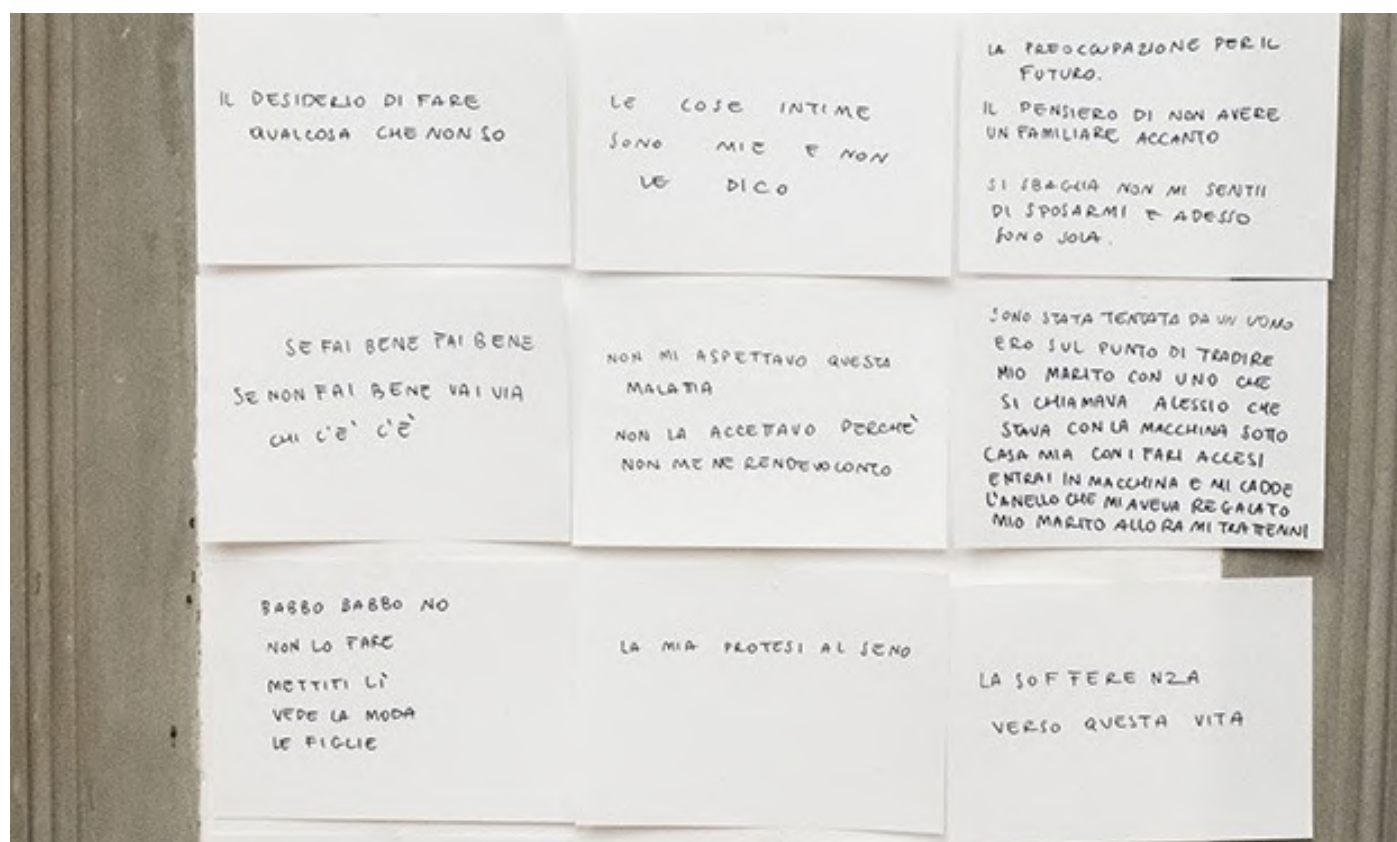 IL DESIDERIO DI FARE
QUALCOSA CHE NON SO
LE COSE INTIME
SONO MIE E NON
LE DICO
LA PREOCCUPAZIONE PER IL
FUTURO.
IL PENSIERO DI NON AVERE
UN FAMILIARE ACCANTO
SI SBAGLIA NON MI SENTII
DI SPOSARMI E ADESSO
SONO SOLA.
SE FAI BENE FAI BENE
SE NON FAI BENE VAI VIA
CHI C'È C'È
NON MI ASPETTAVO QUESTA
MALATTIA
NON LA ACCETTAVO PERCHÈ
NON ME NE RENDEVO CONTO
SONO STATA TENTATA DA UN UOMO
ERO SUL PUNTO DI TRADIRE
MIO MARITO CON UNO CHE
SI CHIAMAVA ALESSIO CHE
STAVA CON LA MACCHINA SOTTO
CASA MIA CON I FARI ACCESI
ENTRAI IN MACCHINA E MI CADDE
L'ANELLO CHE MI AVEVA REGALATO
MIO MARITO ALLORA MI TRATTENNI
BABBO BABBO NO
NON LO FARE
METTITI LÌ
VEDE LA MODA
LE FIGLIE
LA MIA PROTESI AL SENO
LA SOFFERENZA
VERSO QUESTA VITA